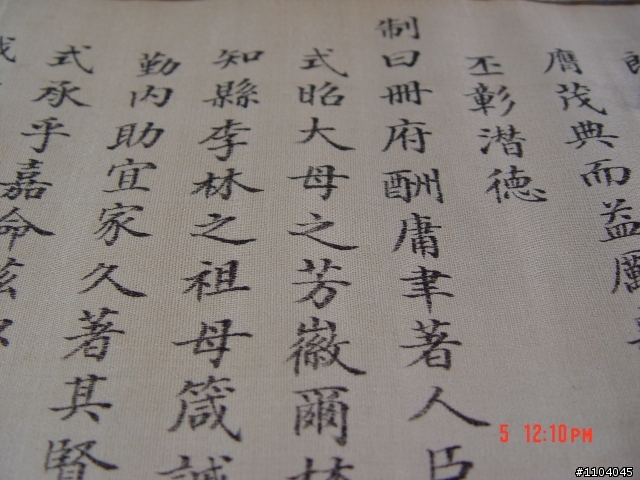 膺茂典而益勵
丕彰潜德
制曰冊府酬庸聿著人臣
式昭大母之芳徽爾林
知縣李林之祖母箴誠
勤内助宜家久著其賢
式承乎嘉命兹
5 12:10PM
#1104045